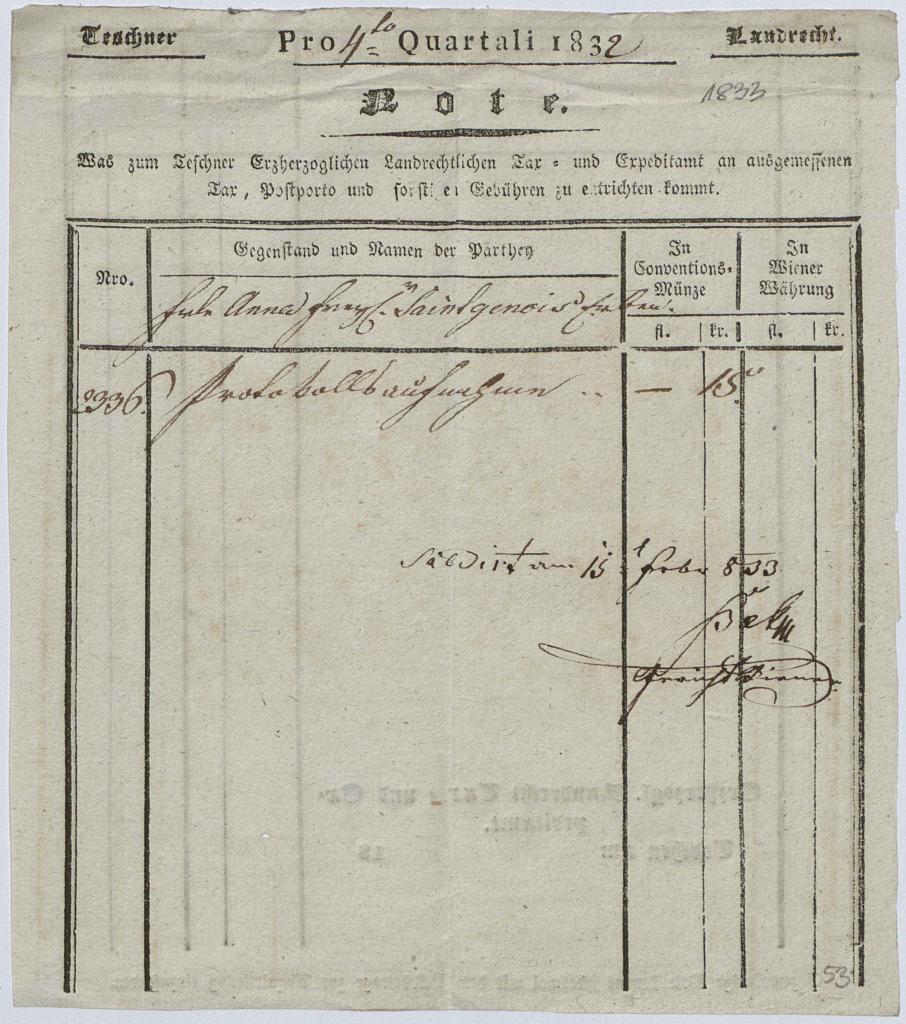 Teschner Pro 4to Quartali 1832 Landrecht.
1833
Note.
Was zum Teschner Erzherzoglichen Landrechtlichen Tax- und Expeditamt an ausgemessenen
Tax, Postporto und sonstigen Gebühren zu entrichten kommt.
Nro. Gegenstand und Namen der Parthey In Conventions-Münze In Wiener Währung
fl. kr. fl. kr.
Anna Saintgenois Erben.
2336. Protokollsaufnahme .. — 15
am 15 Febr 833
Gerichtsdiener
Tax- und Ex-
peditamt.
Teschen am 18
53